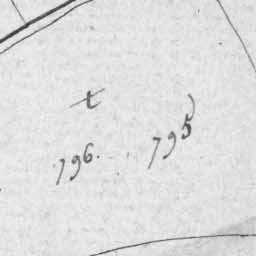 t
796. 795